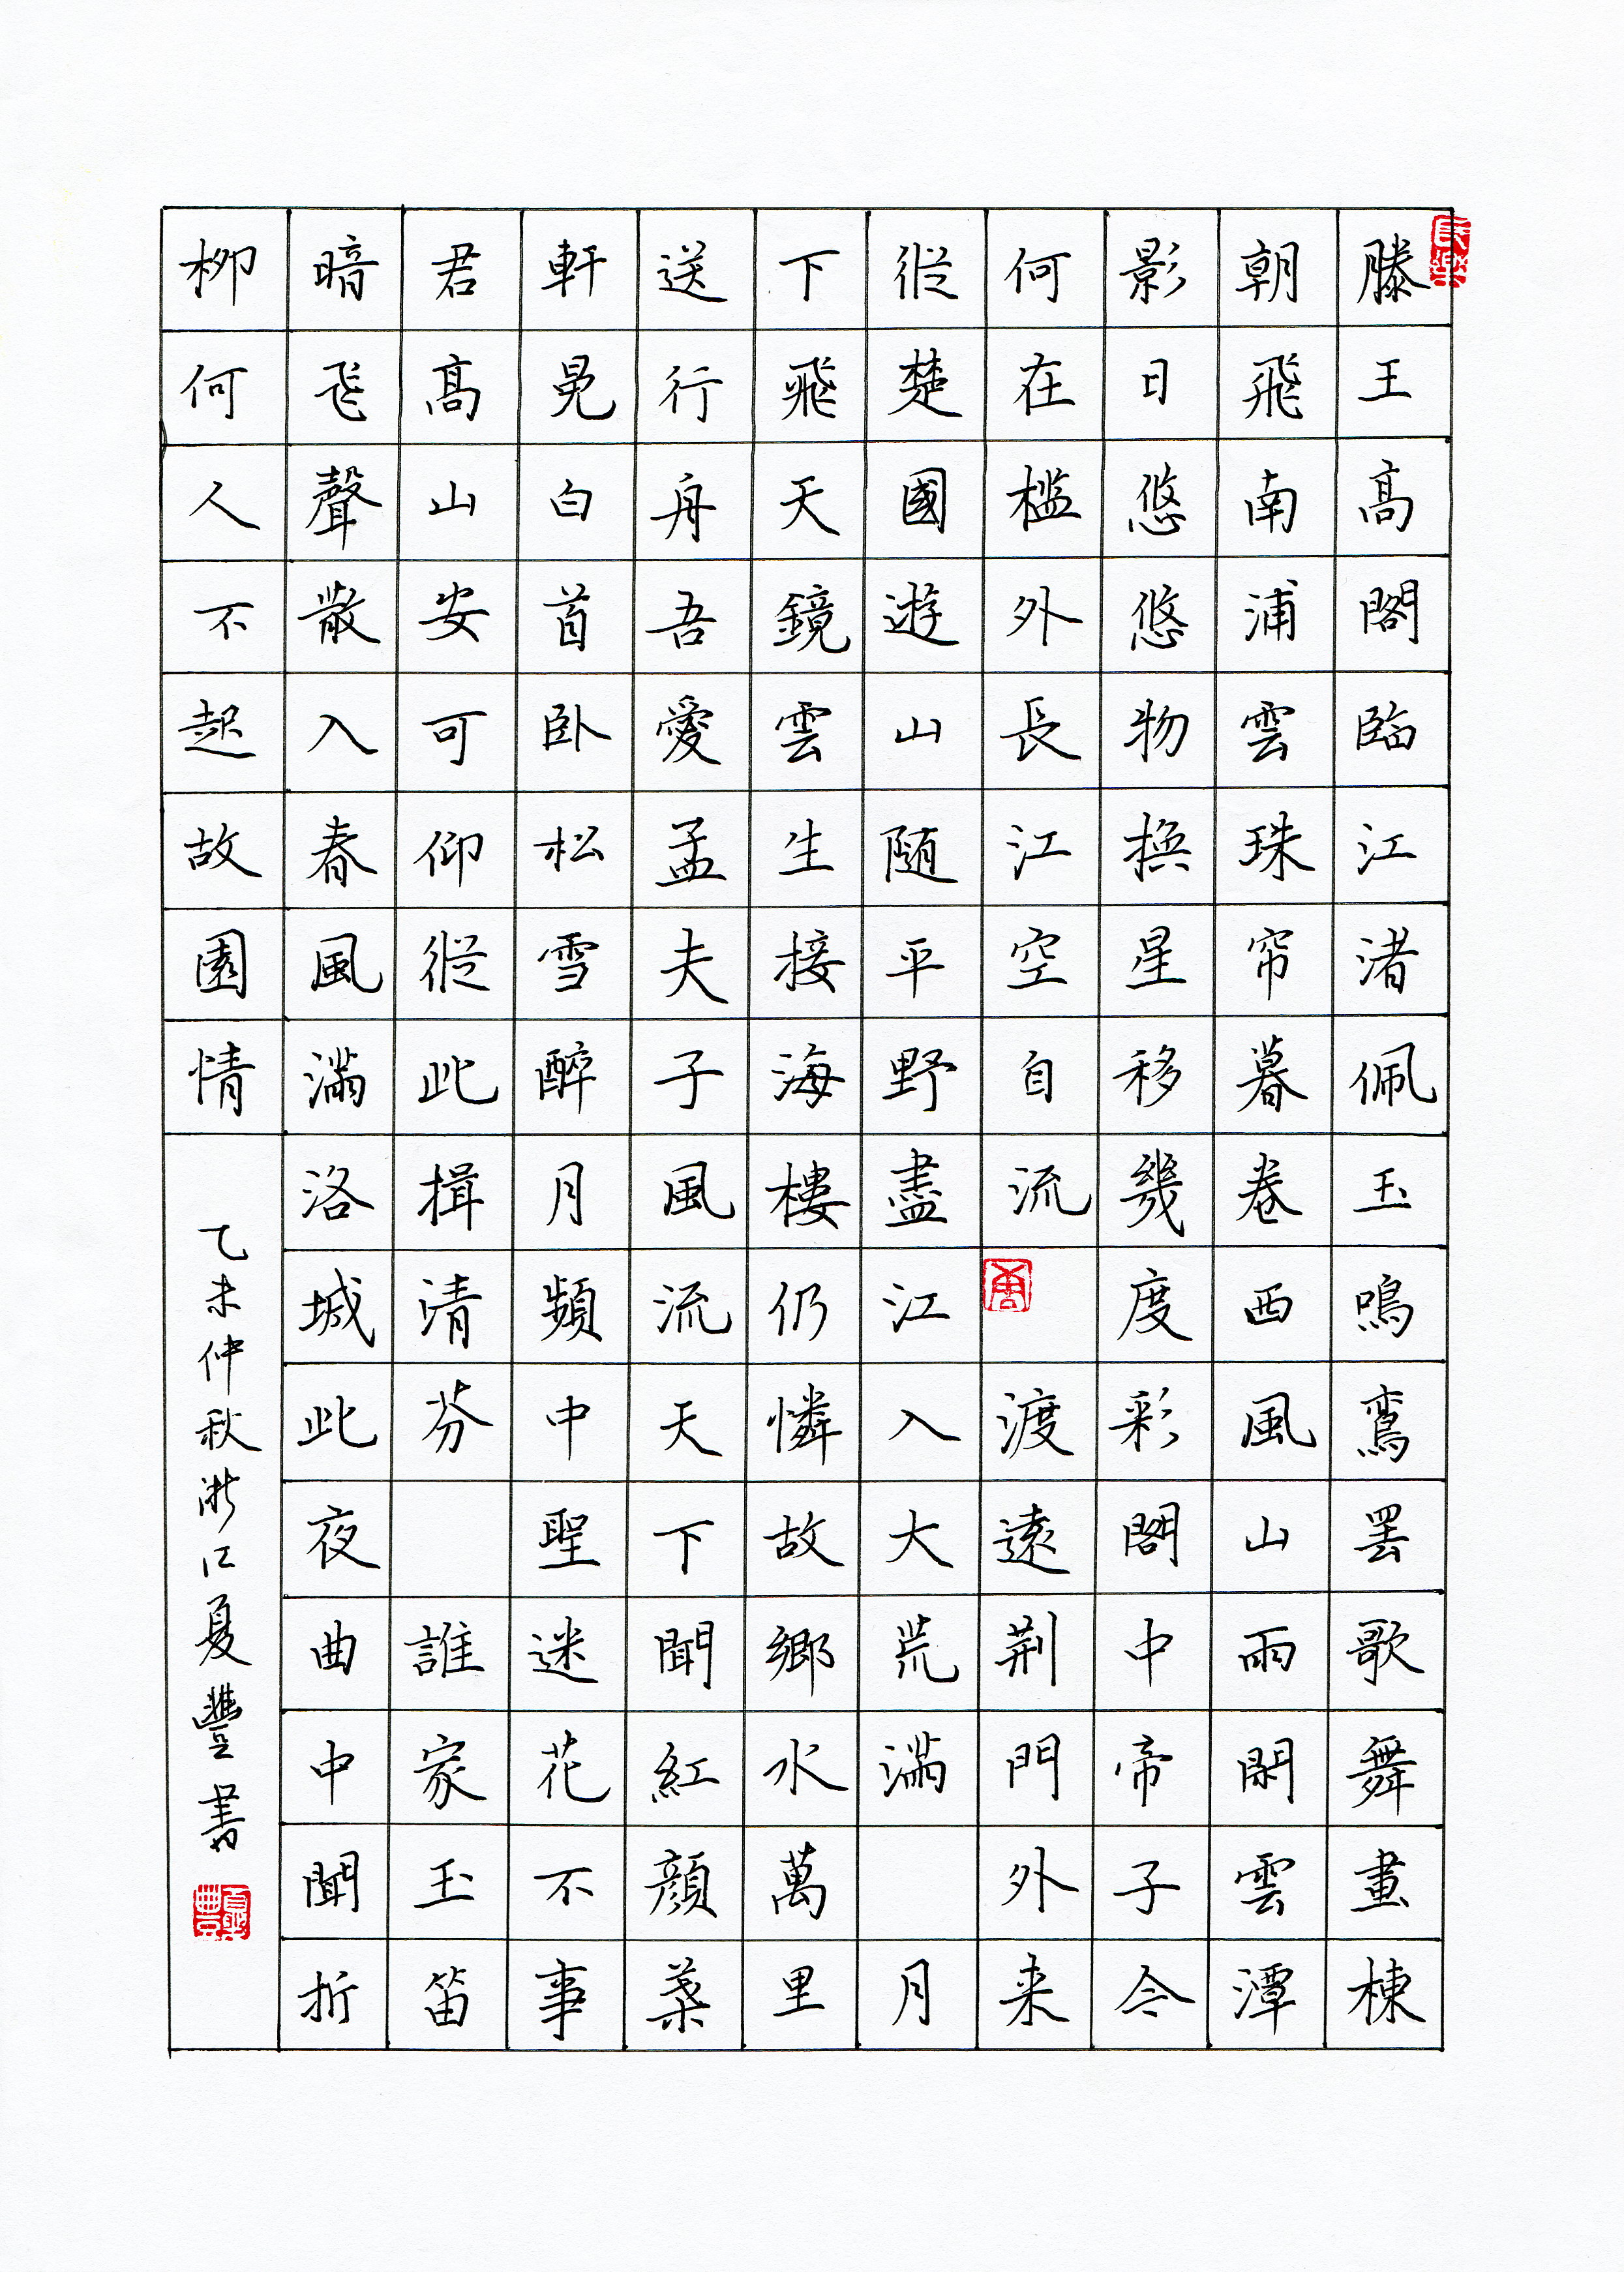 滕王高閣臨江渚佩玉鳴鸞罷歌舞畫棟
朝飛南浦雲珠帘暮卷西風山雨閑雲潭
影日悠悠物换星移幾度彩閣中帝子今
何在檻外長江空自流渡遠荆門外来
從楚國遊山随平野盡江入大荒滿月
下飛天鏡雲生接海樓仍憐故鄉水萬里
送行舟吾愛孟夫子風流天下聞紅顔棄
軒冕白首卧松雪醉月頻中聖迷花不事
君高山安可仰從此揖清芬誰家玉笛
暗飛聲散入春風滿洛城此夜曲中聞折
柳何人不起故園情
乙未仲秋浙江夏豐書